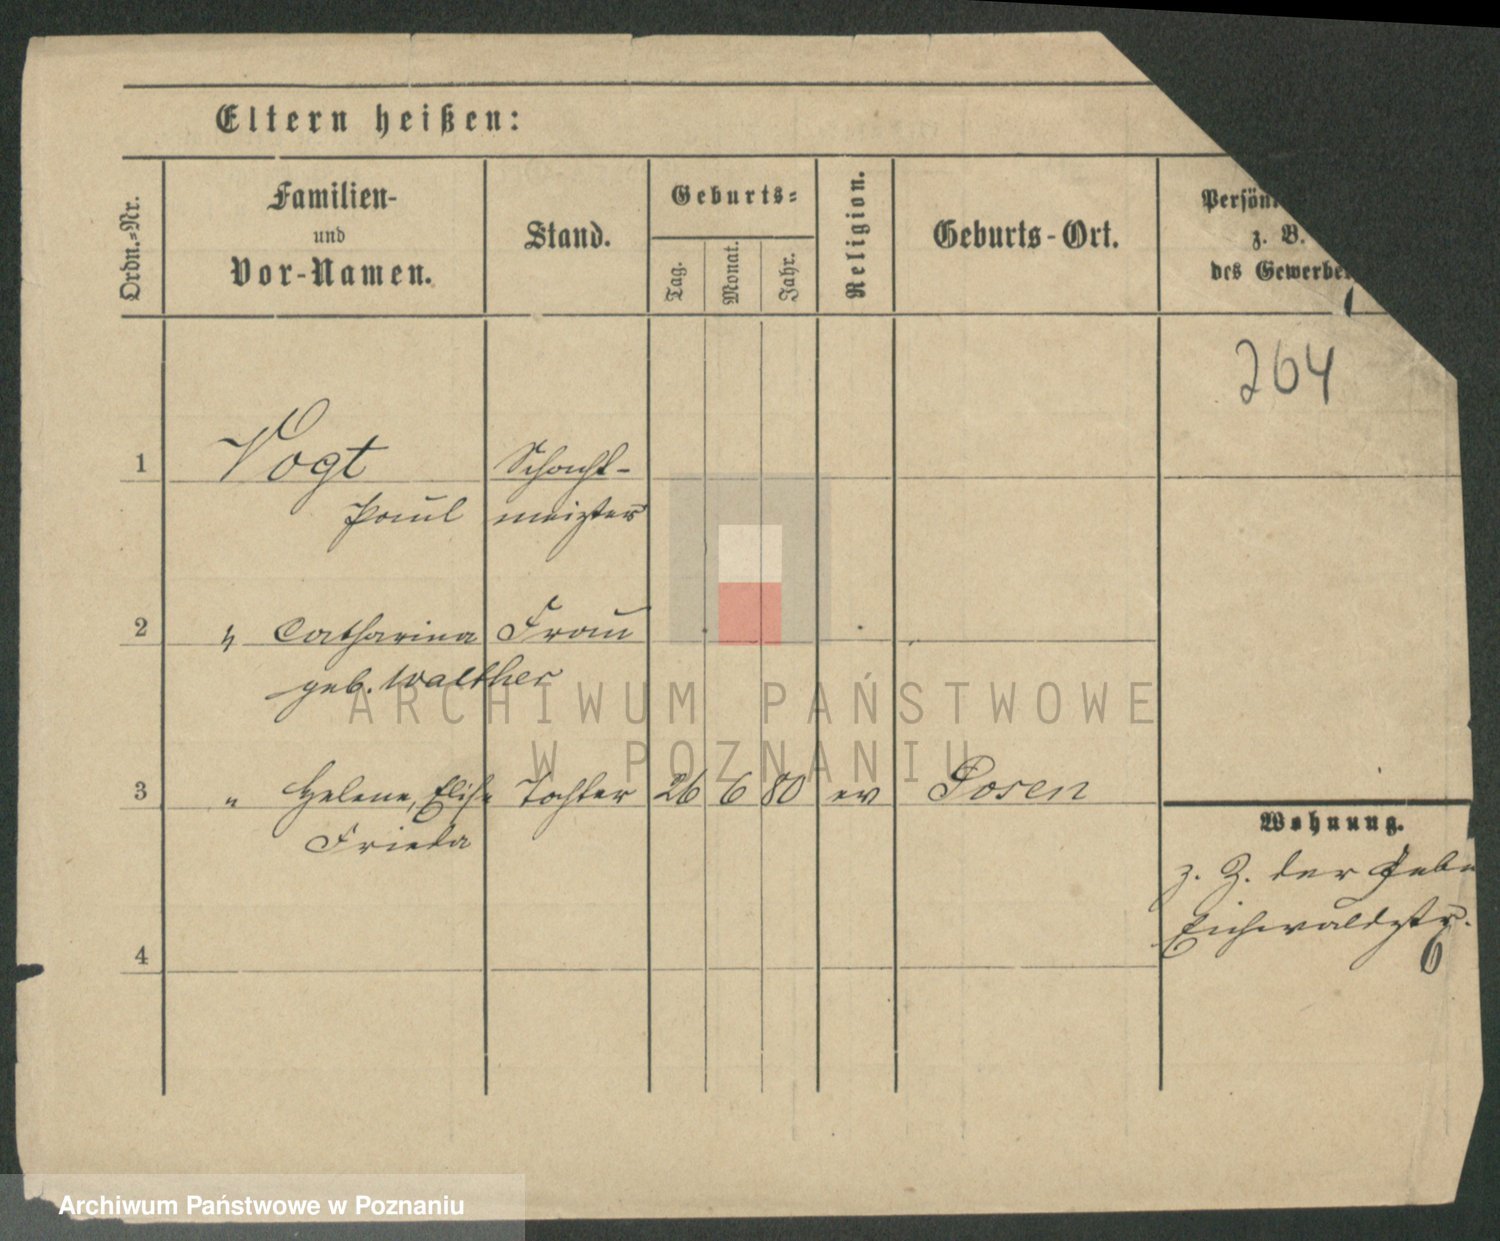 Eltern heißen:
Ordn.-Nr.
Familien-
und
Vor-Namen.
Stand.
Geburts-
Tag.
Monat.
Jahr.
Religion.
Geburts-Ort.
Persön
z. B.
des Gewerbe
264
1 Vogt Schacht-
Paul meister
2 " Catharina Frau
geb. Walther
3 " Helene, Elise Tochter 26 6 80 ev Posen
Frieda
4
Wohnung.
z. Z. der Gebu
Eichwaldstr.
6
ARCHIWUM PAŃSTWOWE
W POZNANIU
Archiwum Państwowe w Poznaniu